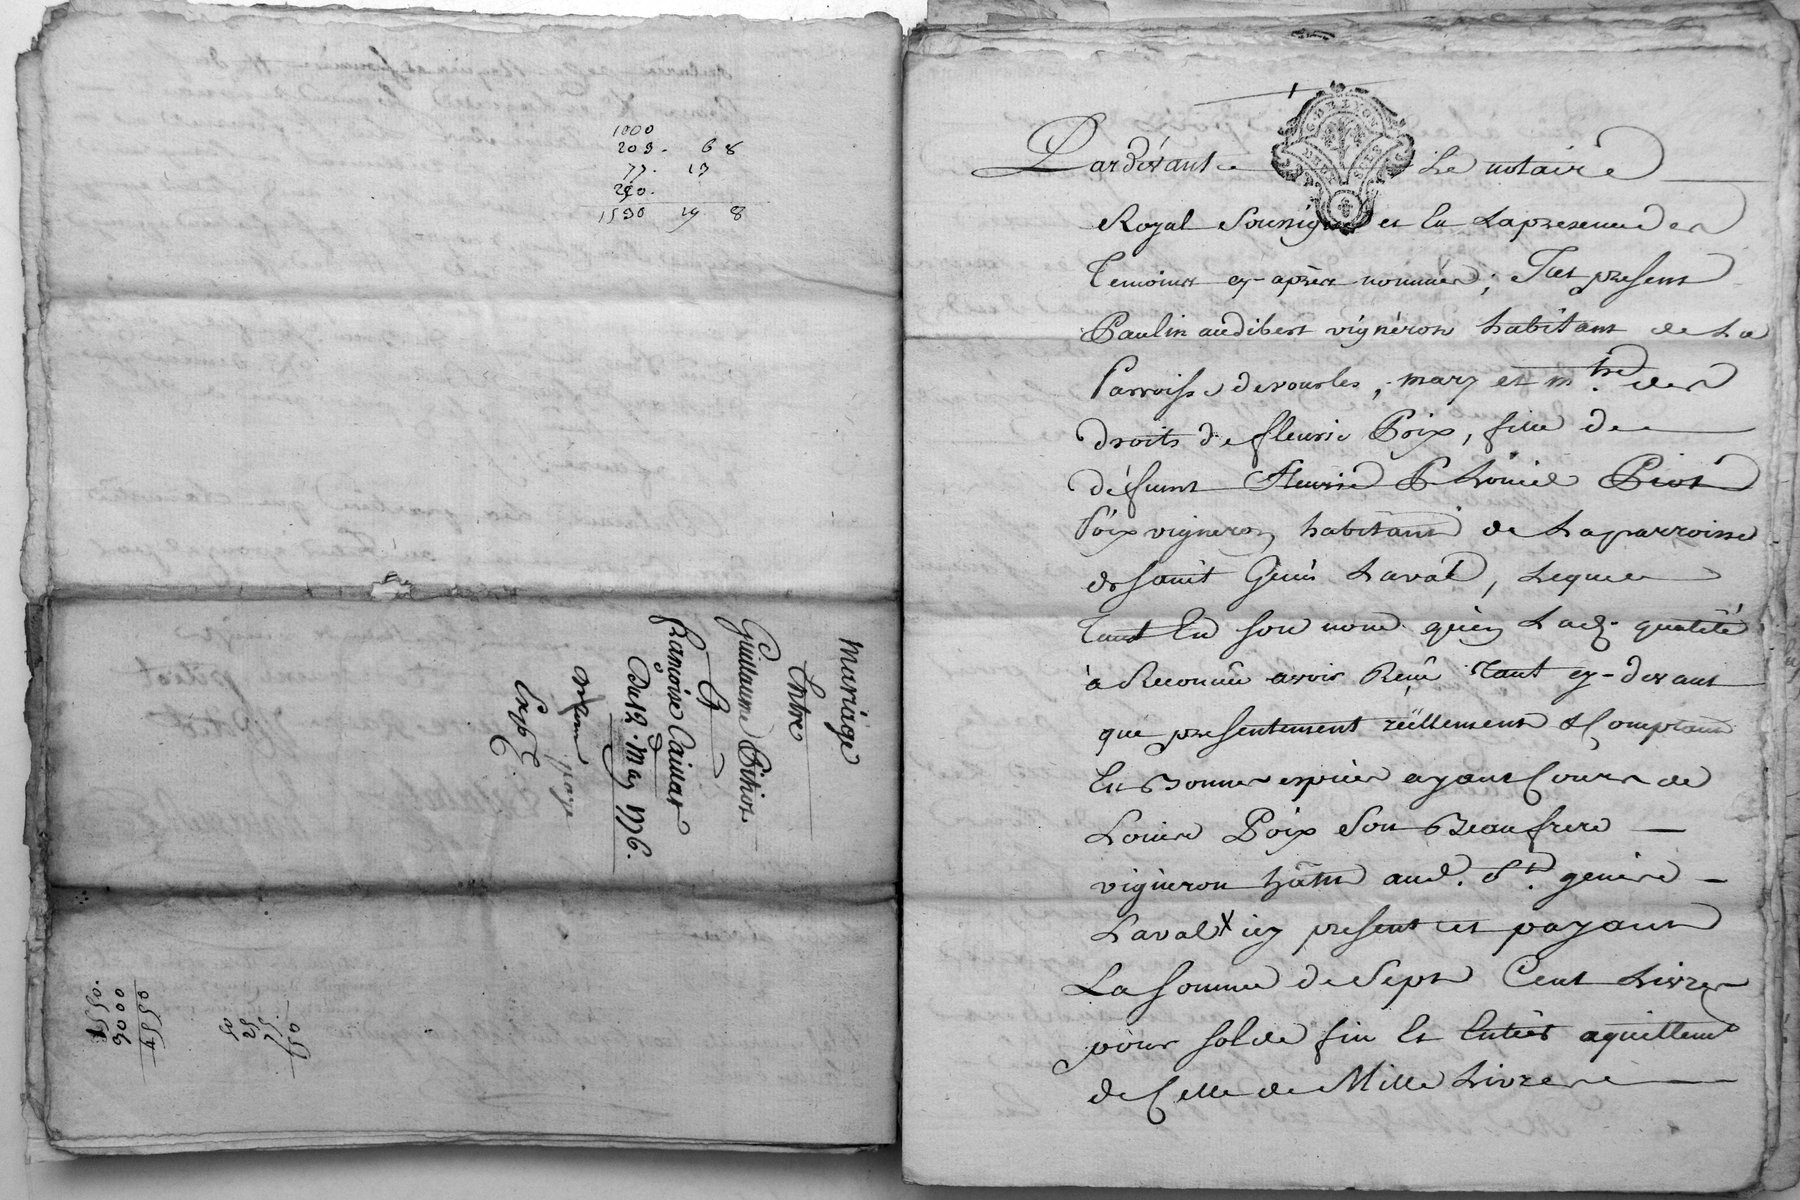 1000
209. 6 8
77. 13
290.
1590 19 8
mariage
Entre
Guillaume Pithiot
Et
Françoise Caillat
Du 12. May 1776.
paye
Exp.
1550.
9000
4550
50
25
75.
150
G. DE LYON
Pardevant Le notaire
Royal Soussigné et En La presence des
Temoins cy-aprèz nommés; fut present
Paulin audibert vigneron habitant de La
Parroisse devourles, mary et m.tre des
droits de fleurie Poix, fille de
défunt Fleurie
Poix vigneron habitant de Laparroisse
de saint Genis Laval, Lequel
Tant En son nom qu'en Lad. qualité
à Reconnu avoir Reçû Tant cy-devant
que presentement réellement & Comptant
En Bonnes espèces ayant Cours de
Louis Poix Son Beaufrere
vigneron h̃ant aud. St. genis
Laval X icy present et payant
La somme de Sept Cent Livres
pour solde fin Et Entier aquittement
de Celle de Mille Livres